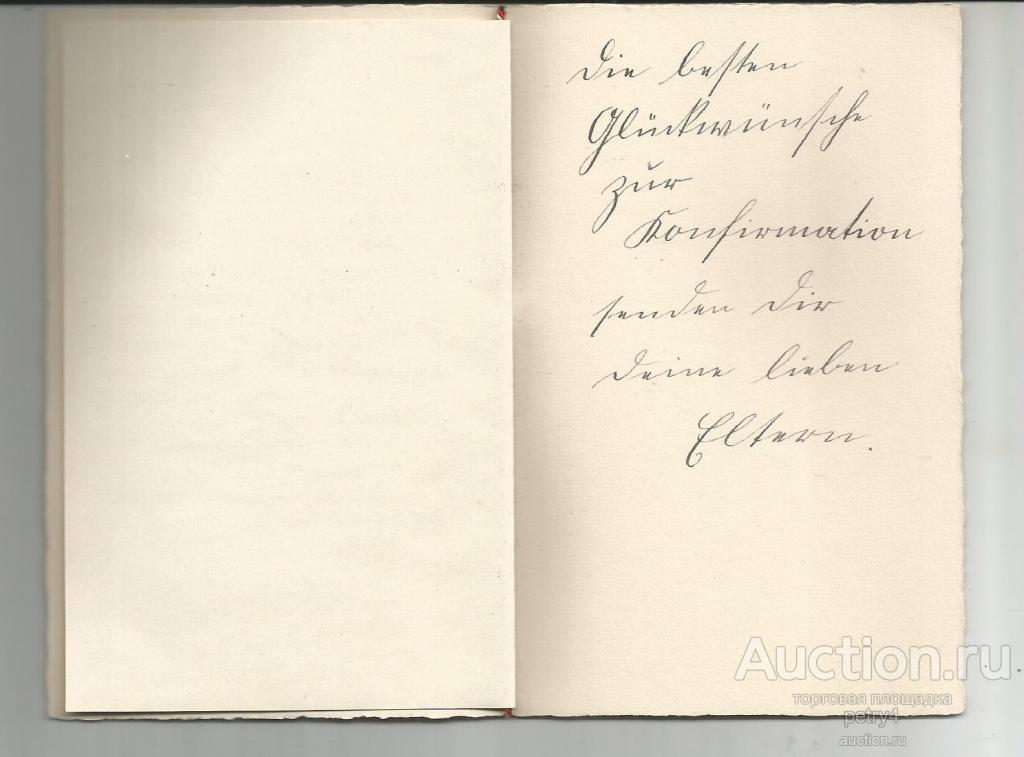 Die besten
Glückwünsche
zur
Konfirmation
senden Dir
Deine lieben
Eltern.
Auction.ru
торговая площадка
petry4
auction.ru